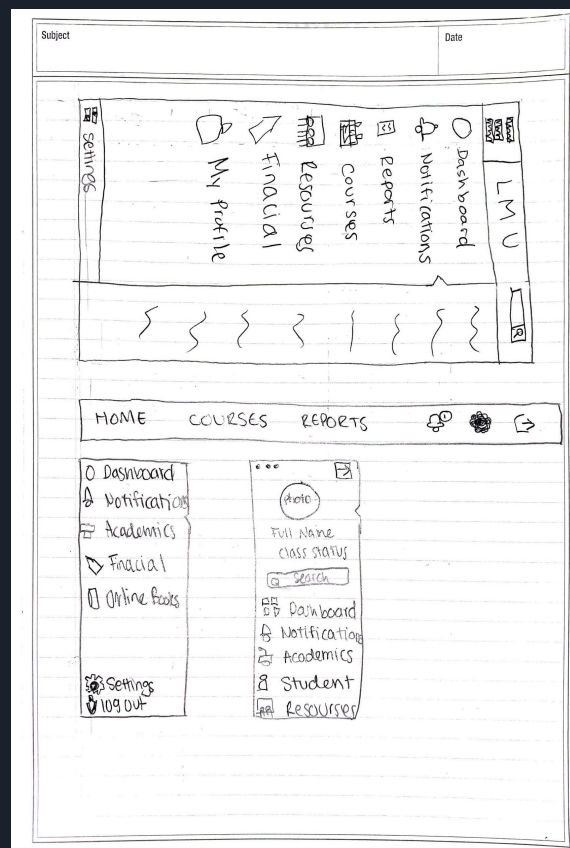 Subject
Date
LMU
Dashboard
Notifications
Reports
Courses
Resourses
Finacial
My Profile
Settings
HOME COURSES REPORTS
Dashboard
Notifications
Academics
Finacial
Online Books
Settings
log out
photo
Full Name
class status
Search
Dashboard
Notification
Academics
Student
Resourses